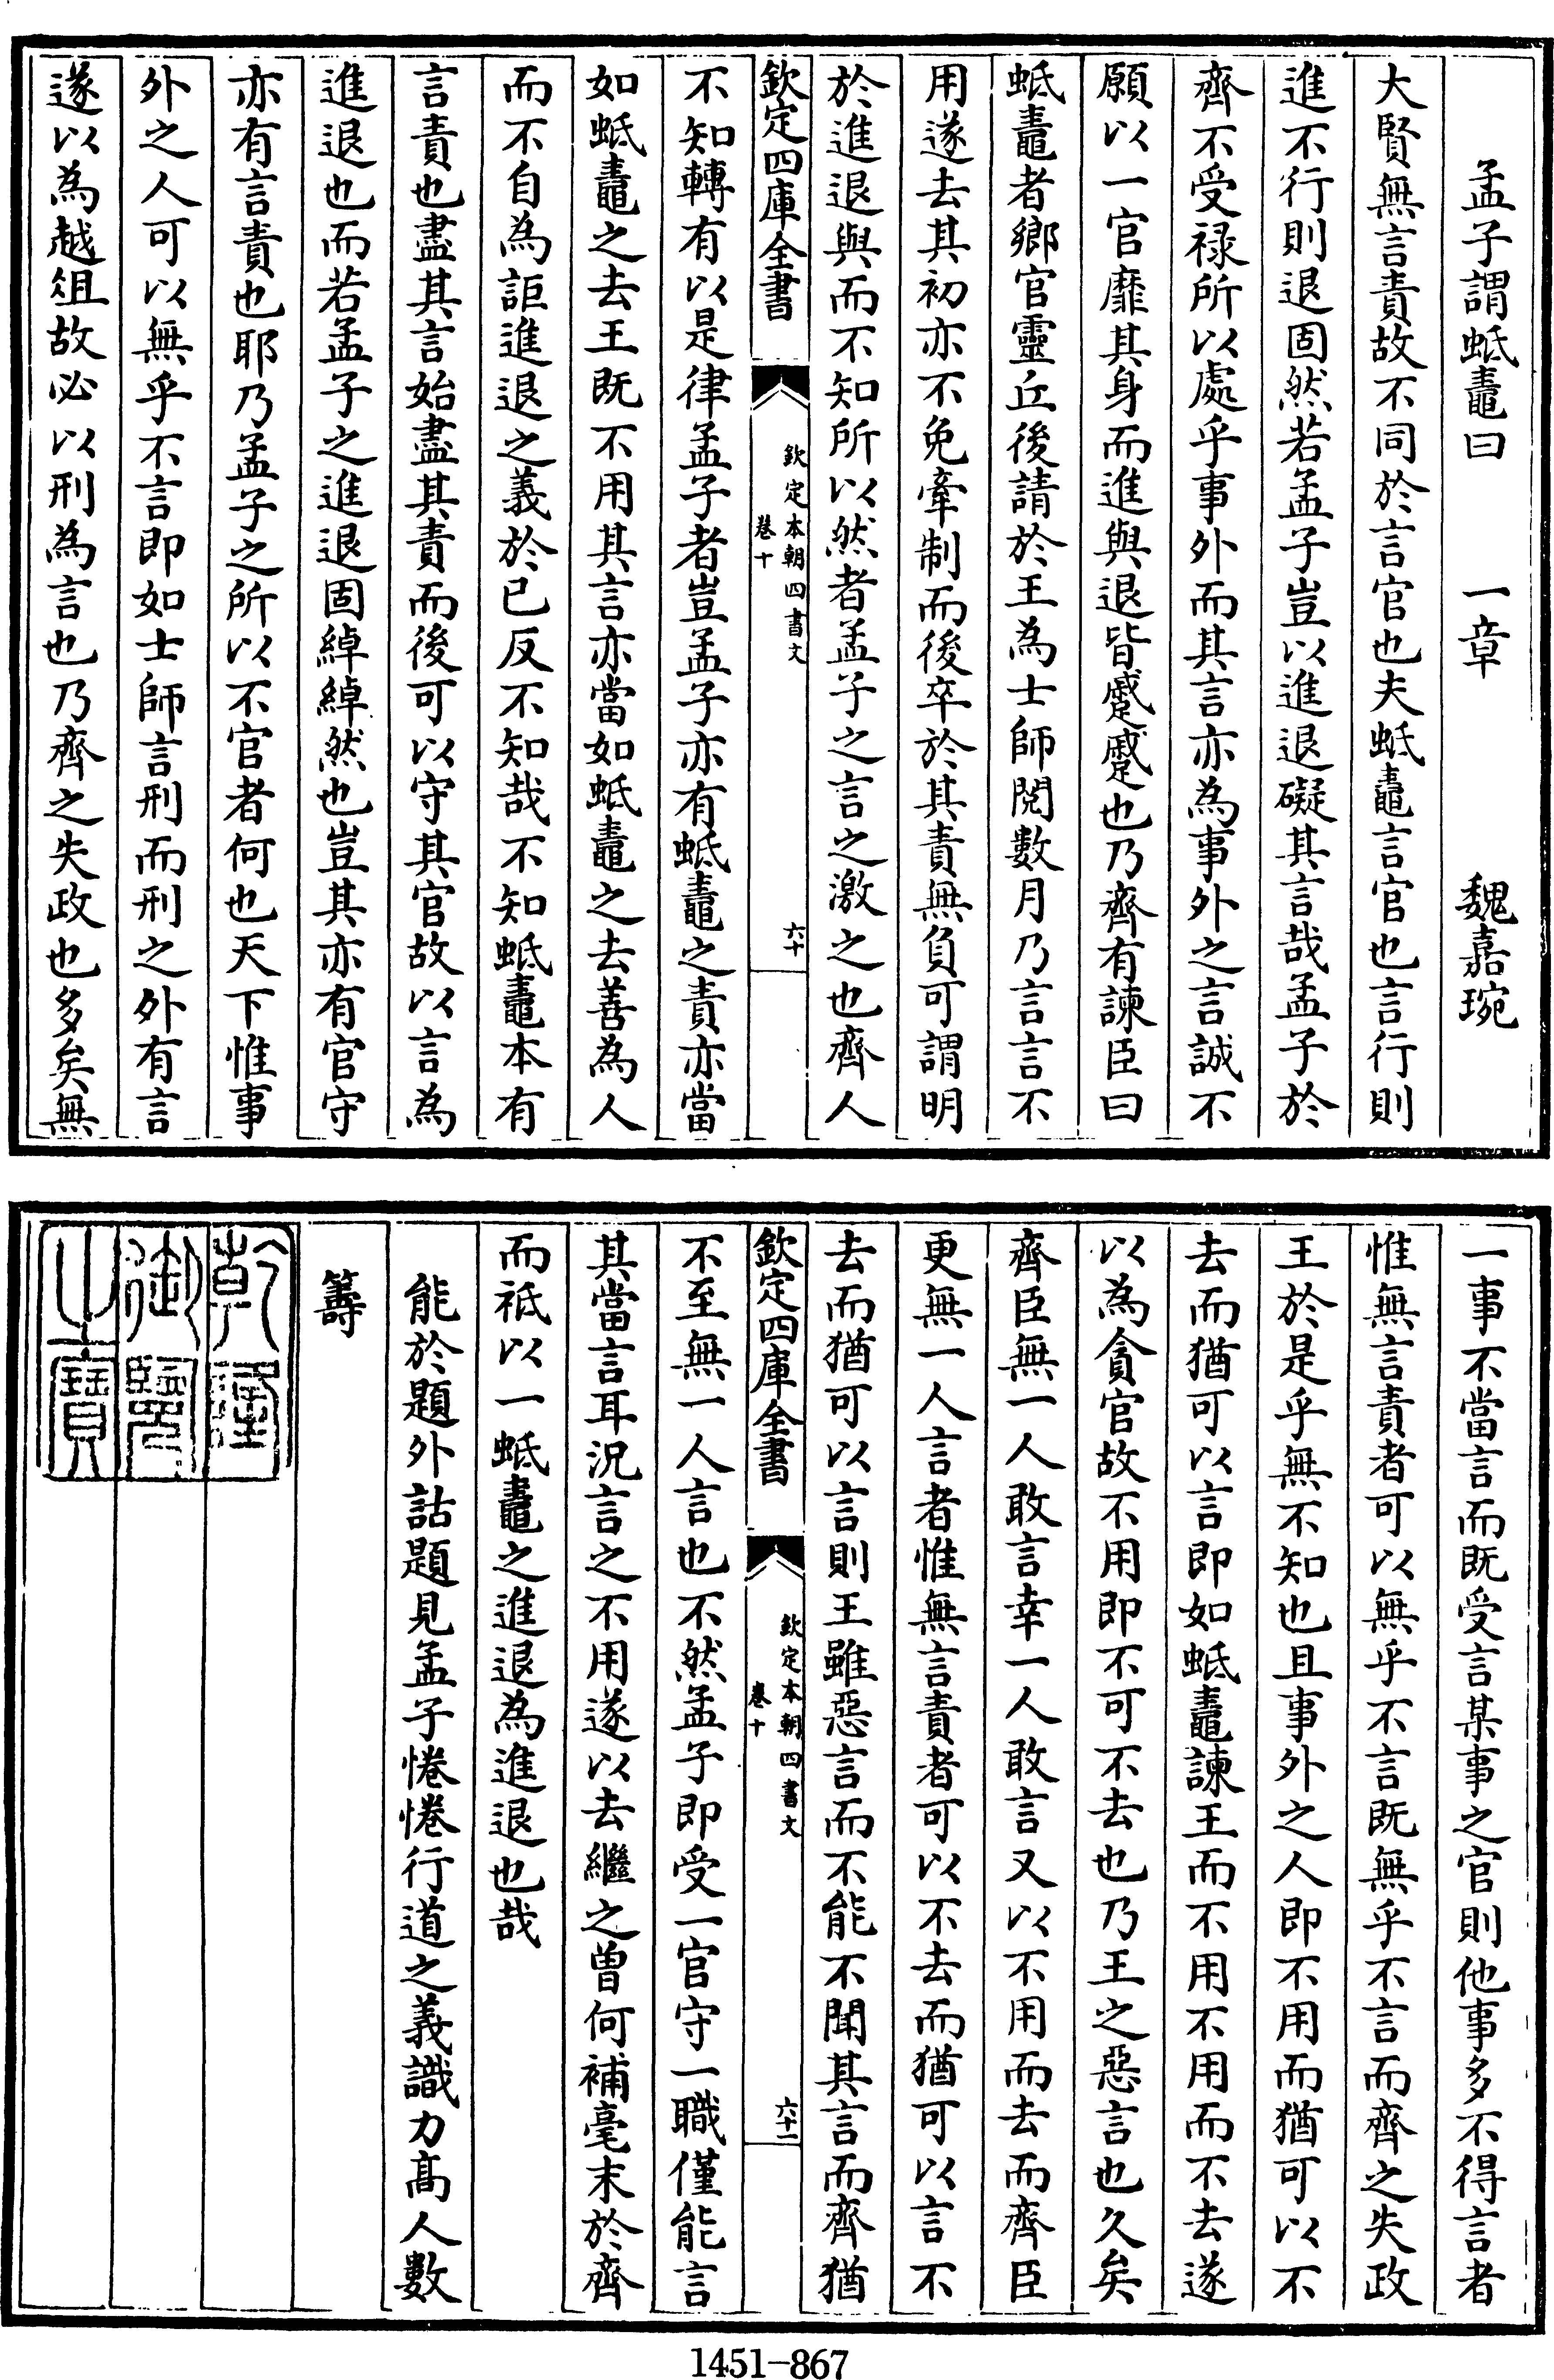 孟子謂蚳鼃曰　一章　魏嘉琬
大賢無言責故不同於言官也夫蚳鼃言官也言行則
進不行則退固然若孟子豈以進退礙其言哉孟子於
齊不受禄所以處乎事外而其言亦為事外之言誠不
願以一官靡其身而進與退皆蹙蹙也乃齊有諫臣曰
蚳鼃者鄉官靈丘後請於王為士師閱數月乃言言不
用遂去其初亦不免牽制而後卒於其責無負可謂明
於進退與而不知所以然者孟子之言之激之也齊人
欽定四庫全書
欽定本朝四書文
卷十
六十
不知轉有以是律孟子者豈孟子亦有蚳鼃之責亦當
如蚳鼃之去王既不用其言亦當如蚳鼃之去善為人
而不自為詎進退之義於已反不知哉不知蚳鼃本有
言責也盡其言始盡其責而後可以守其官故以言為
進退也而若孟子之進退固綽綽然也豈其亦有官守
亦有言責也耶乃孟子之所以不官者何也天下惟事
外之人可以無乎不言即如士師言刑而刑之外有言
遂以為越俎故必以刑為言也乃齊之失政也多矣無
一事不當言而既受言某事之官則他事多不得言者
惟無言責者可以無乎不言既無乎不言而齊之失政
王於是乎無不知也且事外之人即不用而猶可以不
去而猶可以言即如蚳鼃諫王而不用不用而不去遂
以為貪官故不用即不可不去也乃王之惡言也久矣
齊臣無一人敢言幸一人敢言又以不用而去而齊臣
更無一人言者惟無言責者可以不去而猶可以言不
去而猶可以言則王雖惡言而不能不聞其言而齊猶
欽定四庫全書
欽定本朝四書文
卷十
六十一
不至無一人言也不然孟子即受一官守一職僅能言
其當言耳況言之不用遂以去繼之曽何補毫末於齊
而祗以一蚳鼃之進退為進退也哉
能於題外詁題見孟子惓惓行道之義識力髙人數
籌
乾隆
御覽
之寶
1451-867